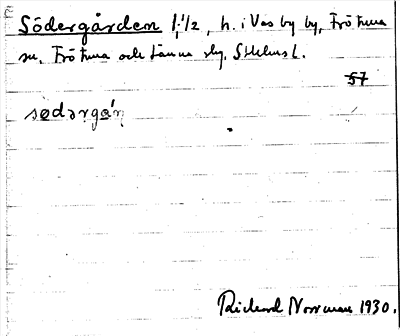 Södergården 1:1/2, h. i Vasby by, Frötuna
sn, Frötuna och Länna skg. Sthlms l.
57
sødərgɑ́ṇ
Rickard Norrman 1930.